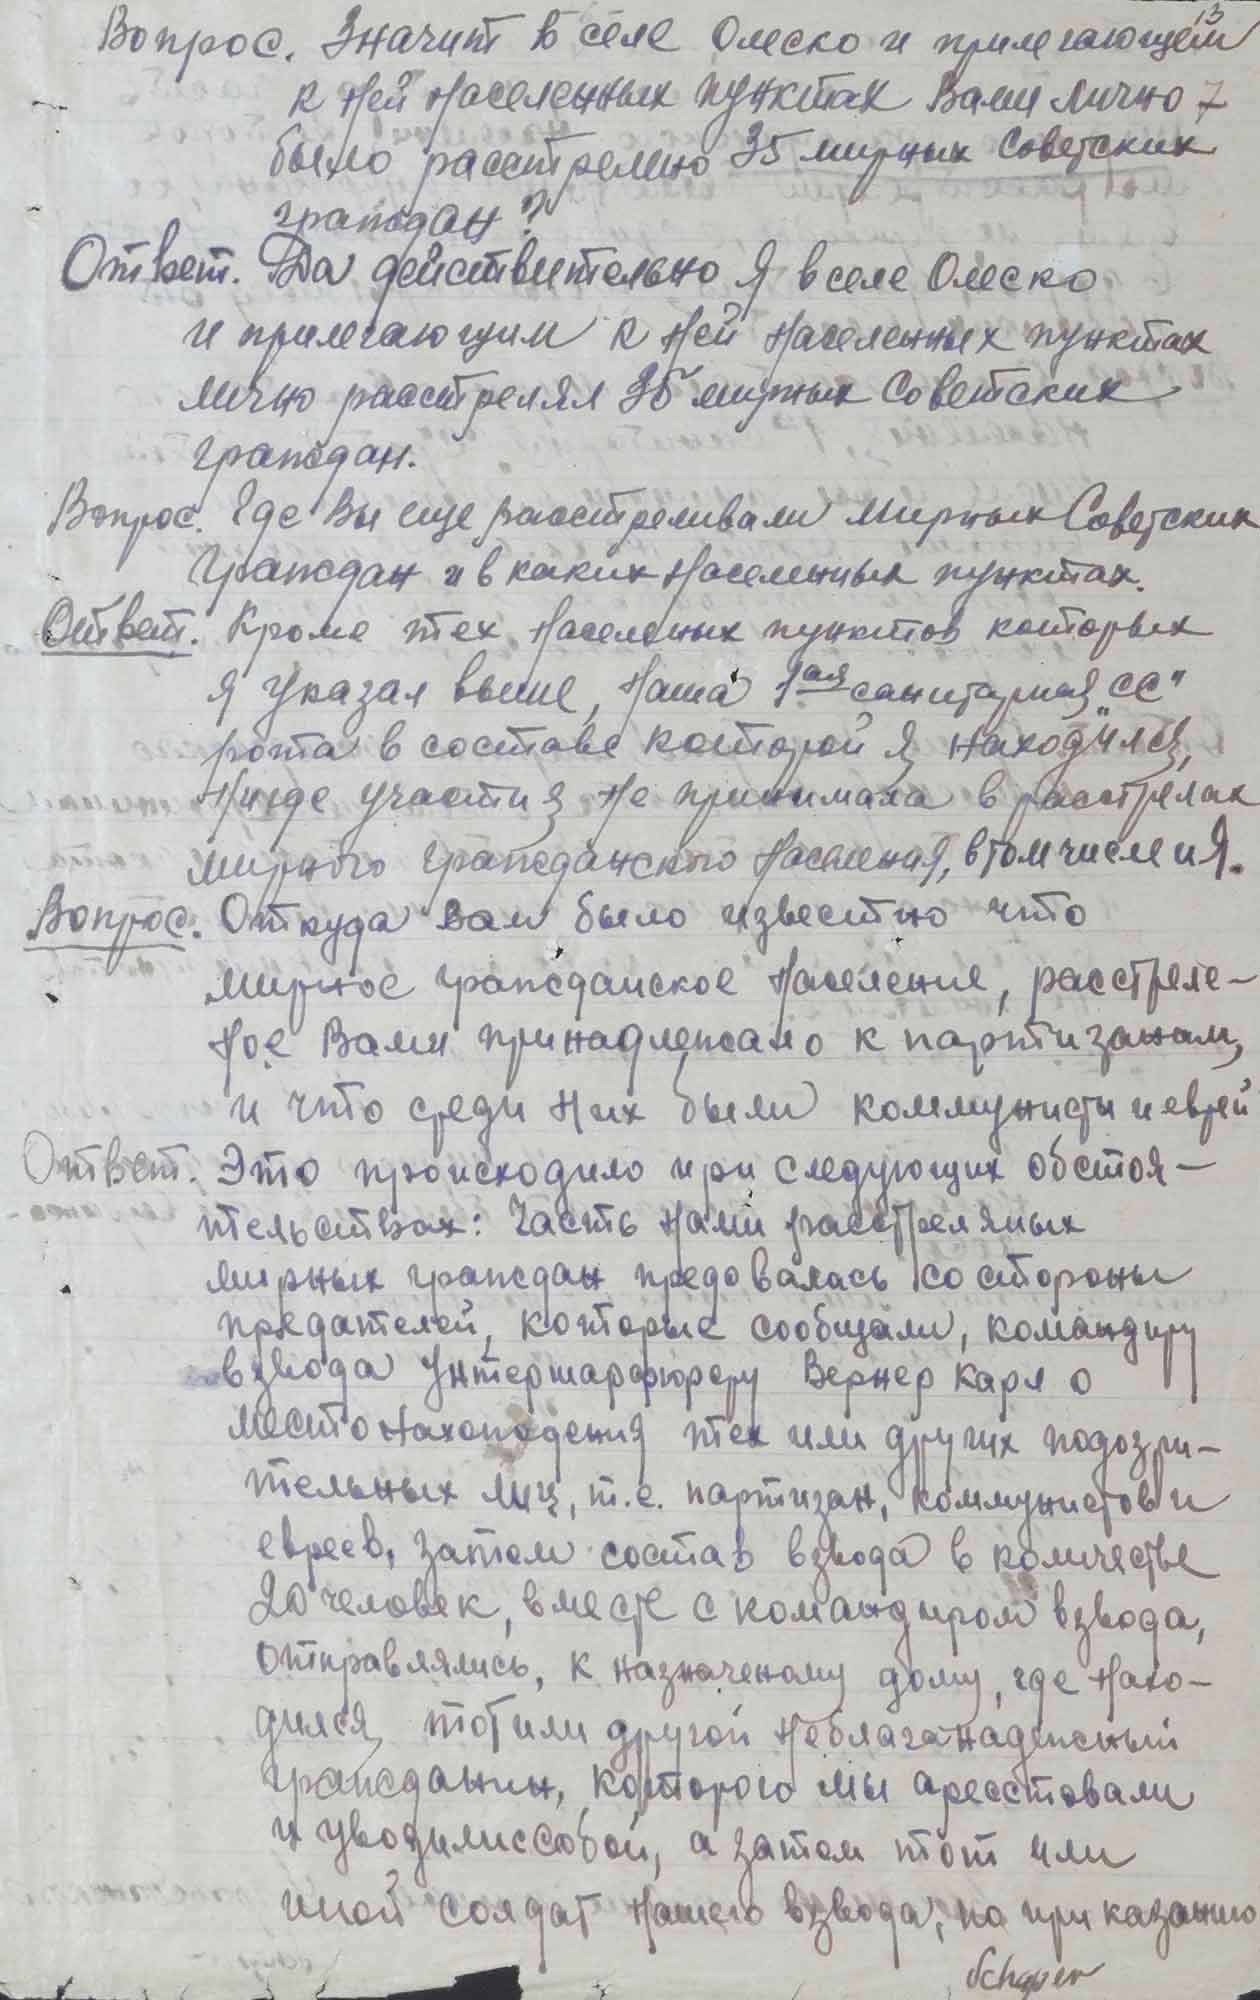 13
Вопрос. Значит в селе Олеско и прилегающем
к ней населенных пунктах Вами лично 7
было расстрелено 35 мирных Советских
граждан?
Ответ. Да действительно я в селе Олеско
и прилегающим к ней населенных пунктах
лично расстрелял 35 мирных Советских
граждан.
Вопрос. Где Вы еще расстреливали мирных Советских
Граждан и в каких населенных пунктах.
Ответ. Кроме тех населеных пунктов которых
я указал выше, наша 1ая санитарная „СС"
рота в составе которой я находился,
нигде участия не принимала в расстрелах
мирного гражданского населения, в том числе и я.
Вопрос. Откуда вам было известно что
мирное гражданское население, расстреле-
ное Вами принадлежало к партизанам,
и что среди них были коммунисты и еврей
Ответ. Это происходило при следующих обстоя-
тельствах: Часть нами расстреляных
мирных граждан предовалась со стороны
предателей, которые сообщали, командиру
взвода Унтершарфюреру Вернер Карл о
местонахождения тех или других подозри-
тельных лиц, т.е. партизан, коммунистов и
евреев, затем состав взвода в количестве
20 человек, вместе с командиром взвода,
отправлялись, к назначеному дому, где нахо-
дился тот или другой неблаганадежный
гражданин, которого мы аресстовали
и уводили с собой, а затем тот или
иной солдат нашего взвода, по приказанию
Schaper